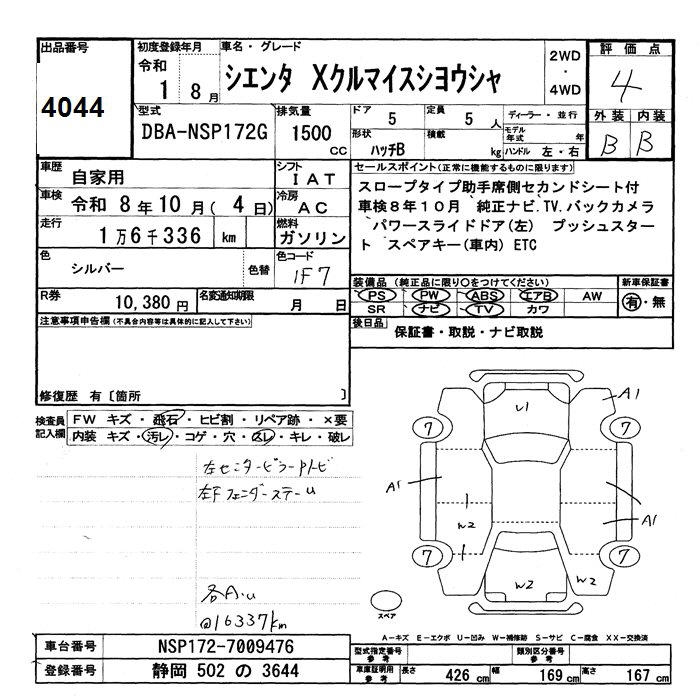 出品番号
4044
初度登録年月
令和
1 8月
車名・グレード
シエンタ Xクルマイスシヨウシャ
2WD
・
4WD
評価点
4
外装 内装
B B
型式
DBA-NSP172G
排気量
1500
cc
ドア
5
定員
5 人
形状
ハッチB
積載
kg
ディーラー・並行
モデル年式 年
ハンドル 左・右
車歴
自家用
シフト
IAT
車検
令和 8年10月(4日)
冷房
AC
走行
1万6千336 km
燃料
ガソリン
色
シルバー
色替
色コード
1F7
R券
10,380円
名変通知期限
月 日
セールスポイント(正常に機能するものに限ります)
スロープタイプ助手席側セカンドシート付
車検8年10月 純正ナビ.TV.バックカメラ
パワースライドドア(左) プッシュスター
ト スペアキー(車内) ETC
装備品(純正品に限り○をつけてください)
PS PW ABS エアB AW
SR ナビ TV カワ
新車保証書
有・無
後日品
保証書・取説・ナビ取説
注意事項申告欄(不具合内容等は具体的に記入して下さい)
修復歴 有〔箇所 〕
検査員記入欄
FW キズ・飛石・ヒビ割・リペア跡・×要
内装 キズ・汚レ・コゲ・穴・スレ・キレ・破レ
左センターピラートリビ
左Fフェンダーステーu
各A.u
@16337km
U1
A1
7
7
A1
A1
W2
7
7
W2
W2
スペア
A-キズ E-エクボ U-凹み W-補修跡 S-サビ C-腐食 XX-交換済
車台番号
NSP172-7009476
登録番号
静岡 502 の 3644
型式指定番号
参考
類別区分番号
参考
車庫証明用
参考
長さ
426 cm
幅
169 cm
高さ
167 cm